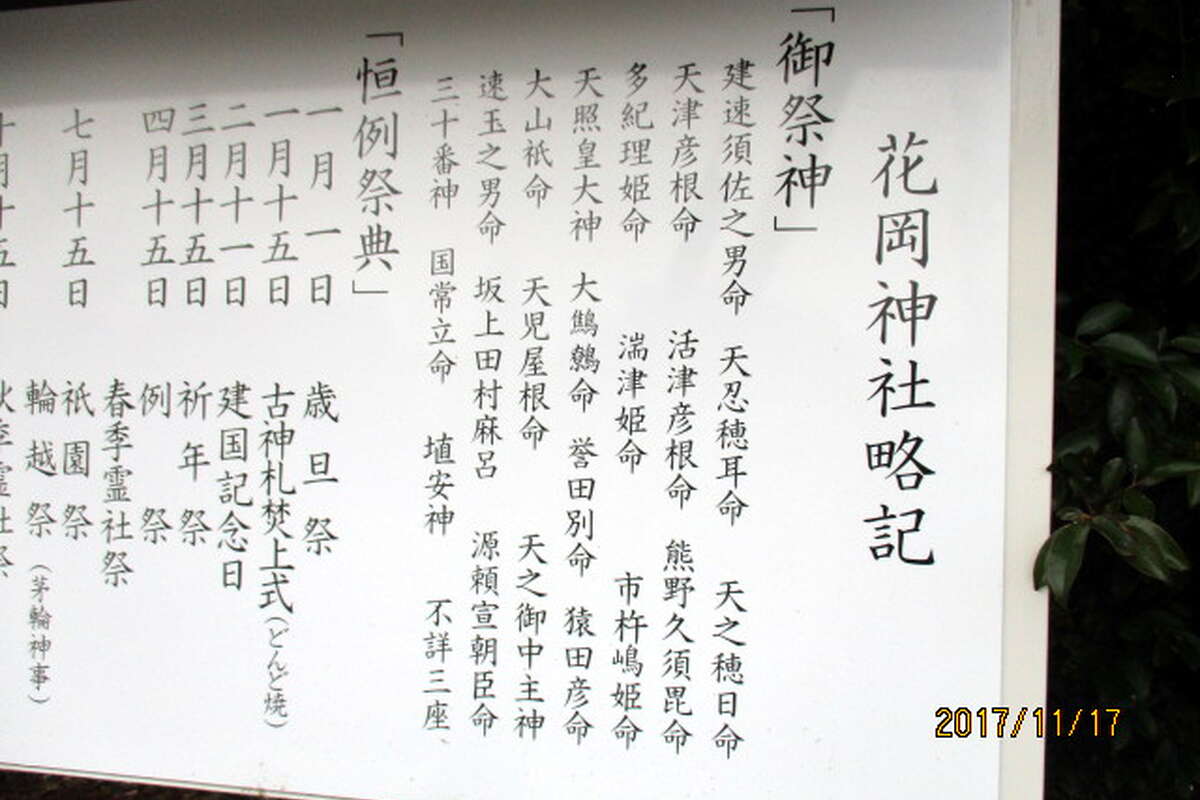 花岡神社略記
「御祭神」
建速須佐之男命 天忍穂耳命 天之穂日命
天津彦根命 活津彦根命 熊野久須毘命
多紀理姫命 湍津姫命 市杵嶋姫命
天照皇大神 大鷦鷯命 誉田別命 猿田彦命
大山祇命 天児屋根命 天之御中主神
速玉之男命 坂上田村麻呂 源頼宣朝臣命
三十番神 国常立命 埴安神 不詳三座、
「恒例祭典」
一月一日 歳旦祭
一月十五日 古神札焚上式(どんど焼)
二月十一日 建国記念日
三月十五日 祈年祭
四月十五日 例祭
春季霊社祭
七月十五日 祇園祭
輪越祭(茅輪神事)
十月十五日 秋季霊社祭
2017/11/17